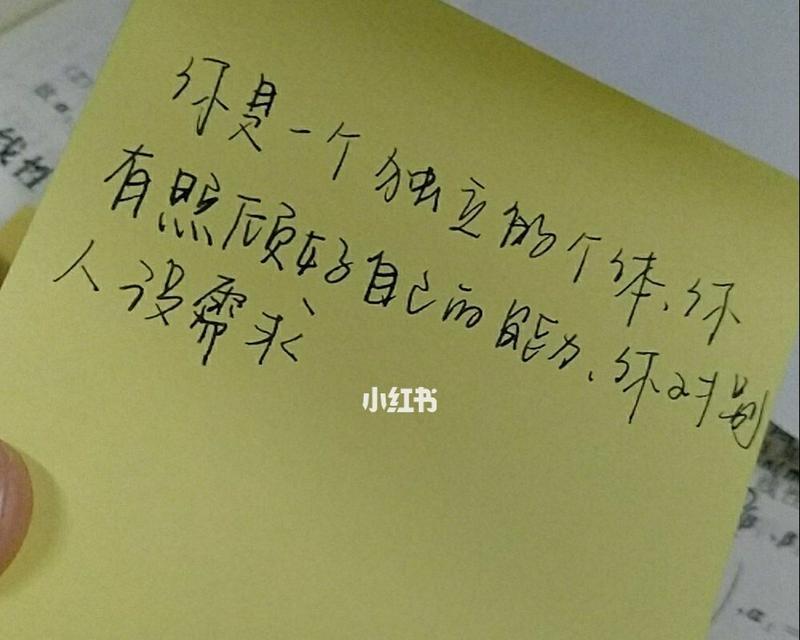 你是一个独立的个体、你
有照顾好自己的能力、你对别
人没需求
小红书
线性